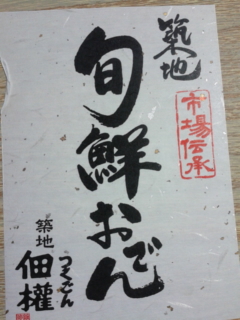 築地
市場伝承
旬鮮おでん
つくごん
築地
佃權